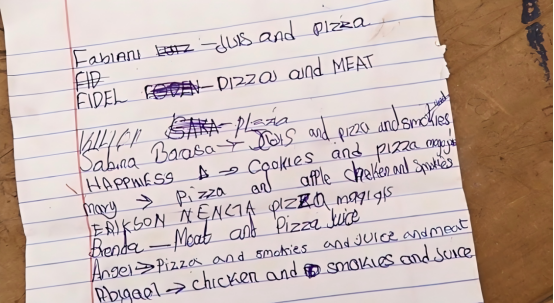 Fabiani - JUS and pizza
FID
FIDEL - PIZZA and MEAT
SAKA - Pizzia
Sabina Barasa - JOIS and pizza and smokies
HAPPINESS → Cookies and pizza
mary → pizza and apple cheken and smokies
ERIKSON NENCIA pizza
Brenda - Meat and Pizza Juice
Angel → Pizza and smokies and Juice and meat
Abigael → chicken and smokies and Juice